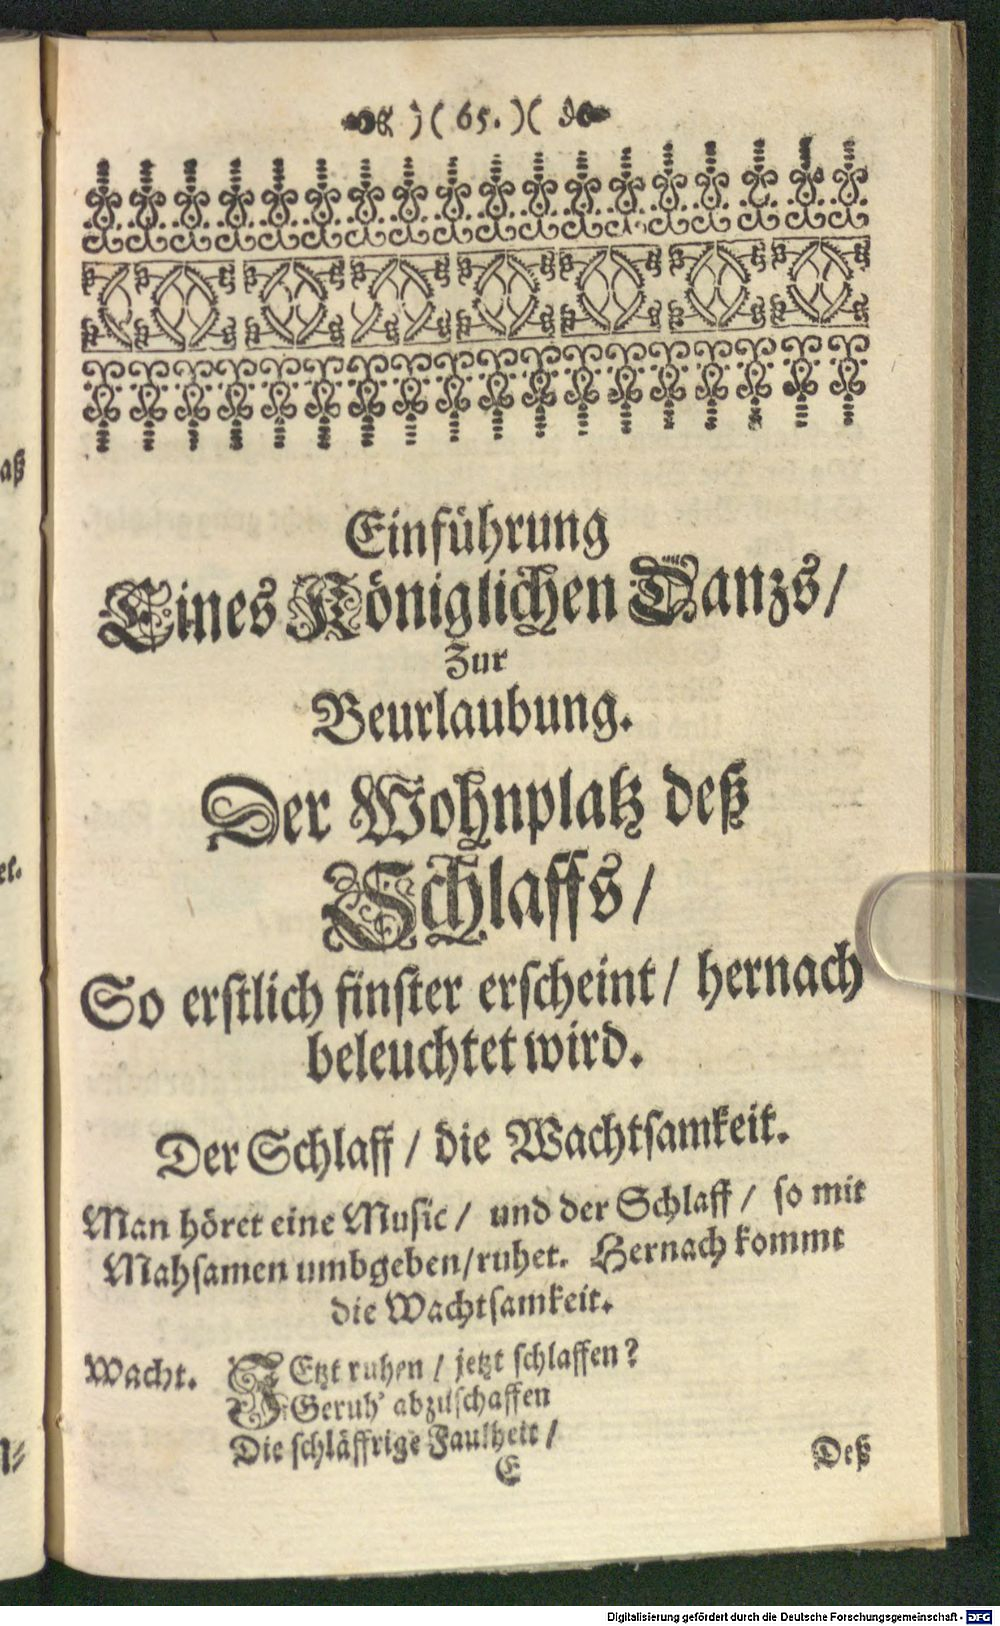 )( 65. )(
Einführung
Eines Königlichen Tanzs/
Zur
Beurlaubung.
Der Wohnplatz deß
Schlaffs/
So erstlich finster erscheint/ hernach
beleuchtet wird.
Der Schlaff/ die Wachtsamkeit.
Man höret eine Music/ und der Schlaff/ so mit
Mahsamen umbgeben/ruhet. Hernach kommt
die Wachtsamkeit.
Wacht. JEtzt ruhen/ jetzt schlaffen?
Geruh' abzuschaffen
Die schläffrige Faulheit/
E Deß
aß
el.
Digitalisierung gefördert durch die Deutsche Forschungsgemeinschaft - DFG